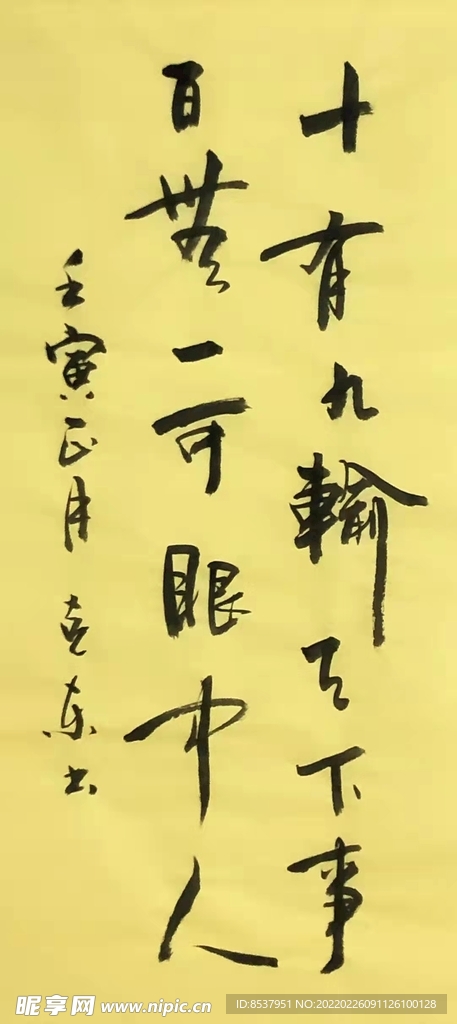 十有九輸天下事
百無一可眼中人
壬寅正月 克東书
昵享网 www.nipic.cn
ID:8537951 NO:20220226091126100128